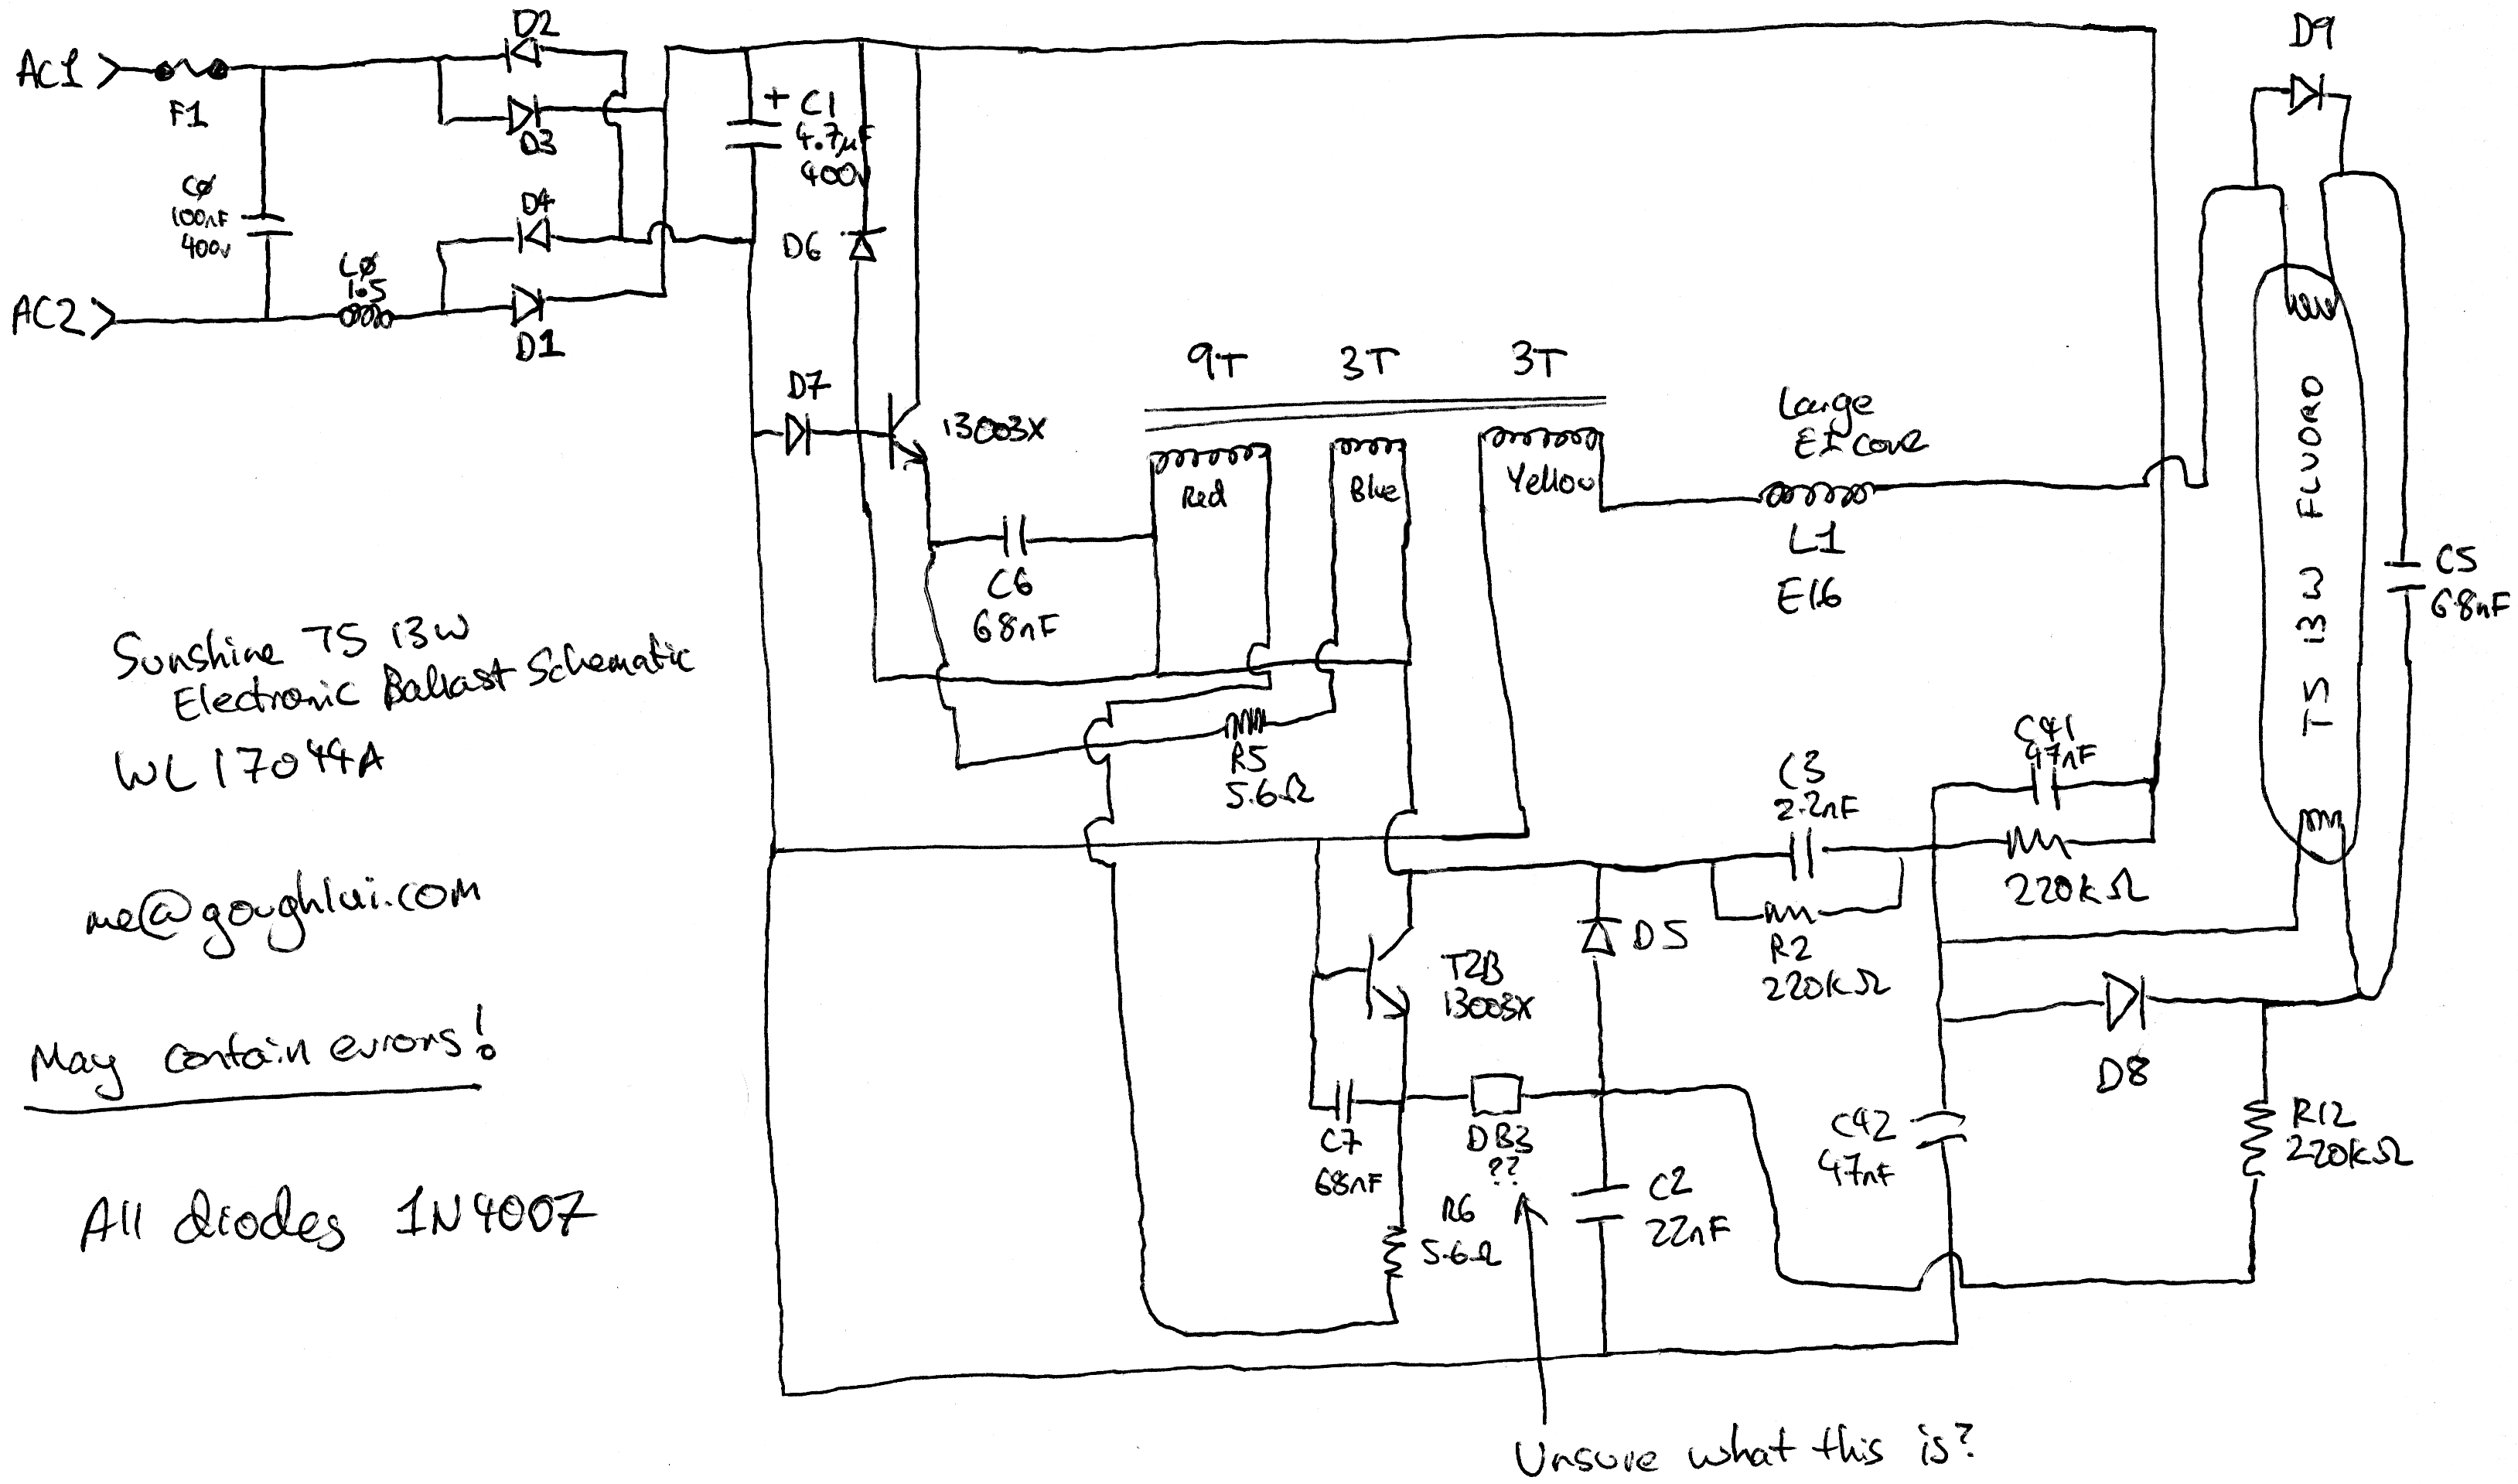 AC1
F1
D2
D3
CØ
100nF
400v
D4
LØ
1.5
AC2
D1
+ C1
4.7µF
400v
D6
D7
13003X
9T
3T
3T
Red
Blue
Yellow
Large
EI Core
L1
E16
D9
T5 13W FLUORO
C5
68nF
C6
68nF
R5
5.6Ω
Sunshine T5 13W
Electronic Ballast Schematic
WL17044A
me@goughlui.com
May contain errors!
All diodes 1N4007
C41
47nF
C3
2.2nF
220kΩ
R2
220kΩ
D5
T2B
13003X
D8
C7
68nF
DB3
??
R6
5.6Ω
C2
22nF
C42
47nF
R12
220kΩ
Unsure what this is?